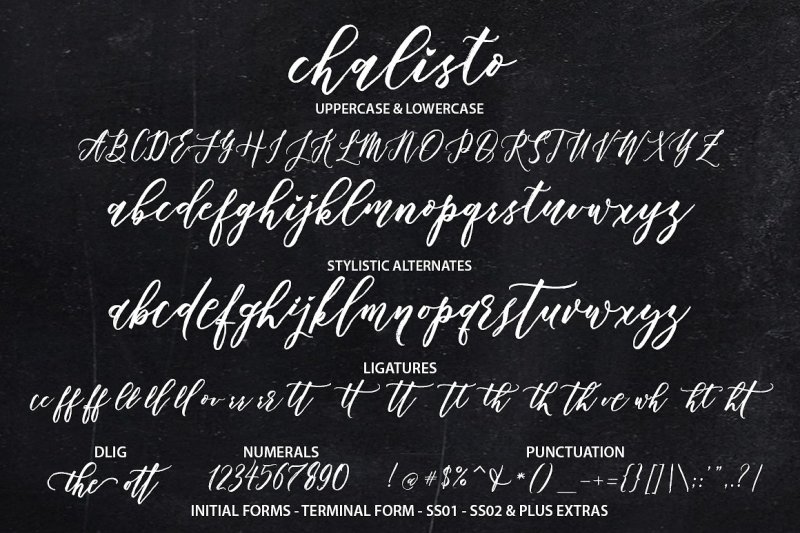 chalisto
UPPERCASE & LOWERCASE
ABCDEFGHIJKLMNOPQRSTUVWXYZ
abcdefghijklmnopqrstuvwxyz
STYLISTIC ALTERNATES
abcdefghijklmnopqrstuvwxyz
LIGATURES
cc ff ff ll ll ll ov rr rr tt tt tt tt th th th ve wh ht ht
DLIG NUMERALS PUNCTUATION
the ott 1234567890 !@#$%^&*()_-+={}[]|\;:'",.?/
INITIAL FORMS - TERMINAL FORM - SS01 - SS02 & PLUS EXTRAS